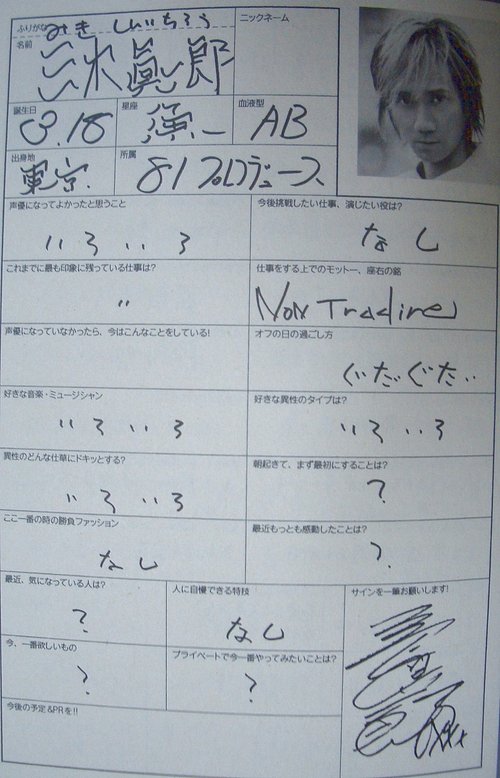 ふりがな みき しんいちろう
ニックネーム
名前
三木眞一郎
誕生日 3.18
星座
血液型 AB
出身地 東京
所属 81プロデュース
声優になってよかったと思うこと
いろいろ
今後挑戦したい仕事、演じたい役は?
なし
これまでに最も印象に残っている仕事は?
〃
仕事をする上でのモットー、座右の銘
Non
声優になっていなかったら、今はこんなことをしている!
オフの日の過ごし方
ぐだぐだ
好きな音楽・ミュージシャン
いろいろ
好きな異性のタイプは?
いろいろ
異性のどんな仕草にドキッとする?
いろいろ
朝起きて、まず最初にすることは?
?
ここ一番の時の勝負ファッション
なし
最近もっとも感動したことは?
?
最近、気になっている人は?
?
人に自慢できる特技
なし
サインを一筆お願いします!
今、一番欲しいもの
?
プライベートで今一番やってみたいことは?
?
今後の予定&PRを!!